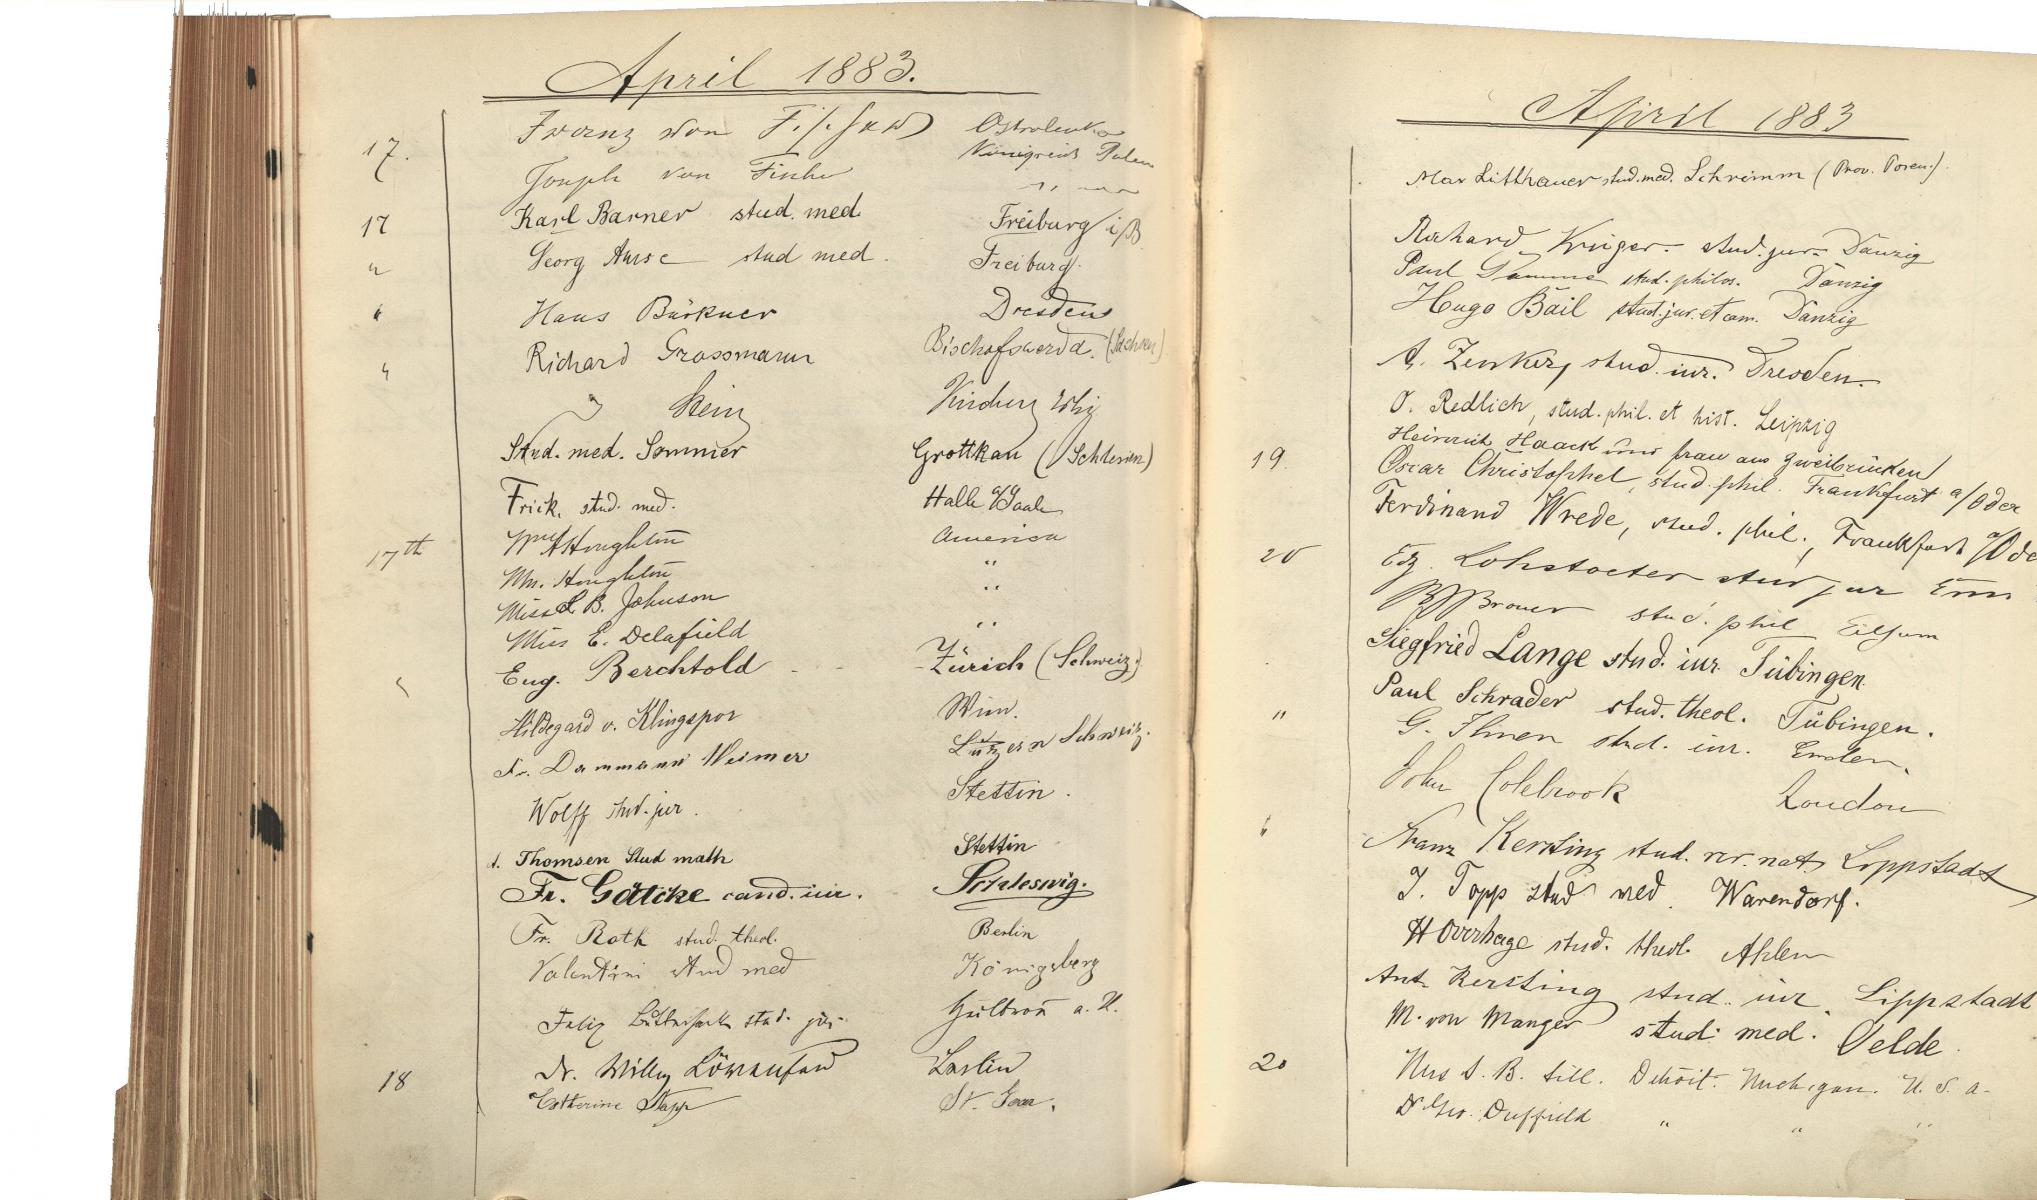 April 1883.
17. Franz von Ostrolenka
Königreich Polen
Joseph von Fischer " "
17 Karl Barner stud. med. Freiburg i/B
" Georg stud med. Freiburg.
" Hans Bürkner Dresden
" Richard Grossmann Bischofswerda. (Sachsen)
" Stein
Stud. med. Sommer Grottkau (Schlesien)
Frick, stud. med. Halle a/Saale
17th Wm A Houghton America
Mrs. Houghton "
Miss L B. Johnson "
Miss E. Delafield "
Eug. Berchtold Zürich (Schweiz.)
Hildegard v. Klingspor Wien.
Fr. Dammann Weimer Luzern Schweiz.
Wolff stud. jur. Stettin.
Thomsen Stud math Stettin
Fr. Gätcke cand. iur. Schleswig.
Fr. Roth stud. theol. Berlin
Valentini stud med Königsberg
Felix stud. jur. Heilbronn a. N.
18 Dr. Willy Berlin
Catherine Knapp St. Goar.
April 1883
Max Litthauer stud. med. Schrimm (Prov. Posen.)
Richard Krüger stud. jur. Danzig
Paul stud. philos. Danzig
Hugo Bail stud. jur. et cam. Danzig
A. Zenker, stud. iur. Dresden.
O. Redlich, stud. phil. et hist. Leipzig
Heinrich Haack und frau aus Zweibrücken
19. Oscar Christophel, stud. phil. Frankfurt a/Oder
Ferdinand Wrede, stud. phil., Frankfurt a/Ode
20 Edz. Lohstoeter stud jur Em
Brouer stud. phil Eilsum
Siegfried Lange stud. iur. Tübingen.
Paul Schrader stud. theol. Tübingen.
" G. Ihnen stud. iur. Emden.
John Colebrook London
" Franz Kersting stud. rer. nat. Lippstadt
J. Topp stud med. Warendorf.
H Overhage stud. theol. Ahlen
Ant. Kersting stud. iur. Lippstadt
M. von Manger stud. med. Oelde
20 Mrs S. B. Sill. Detroit. Michigan. U. S. a-
Dr Geo. Duffield " " "